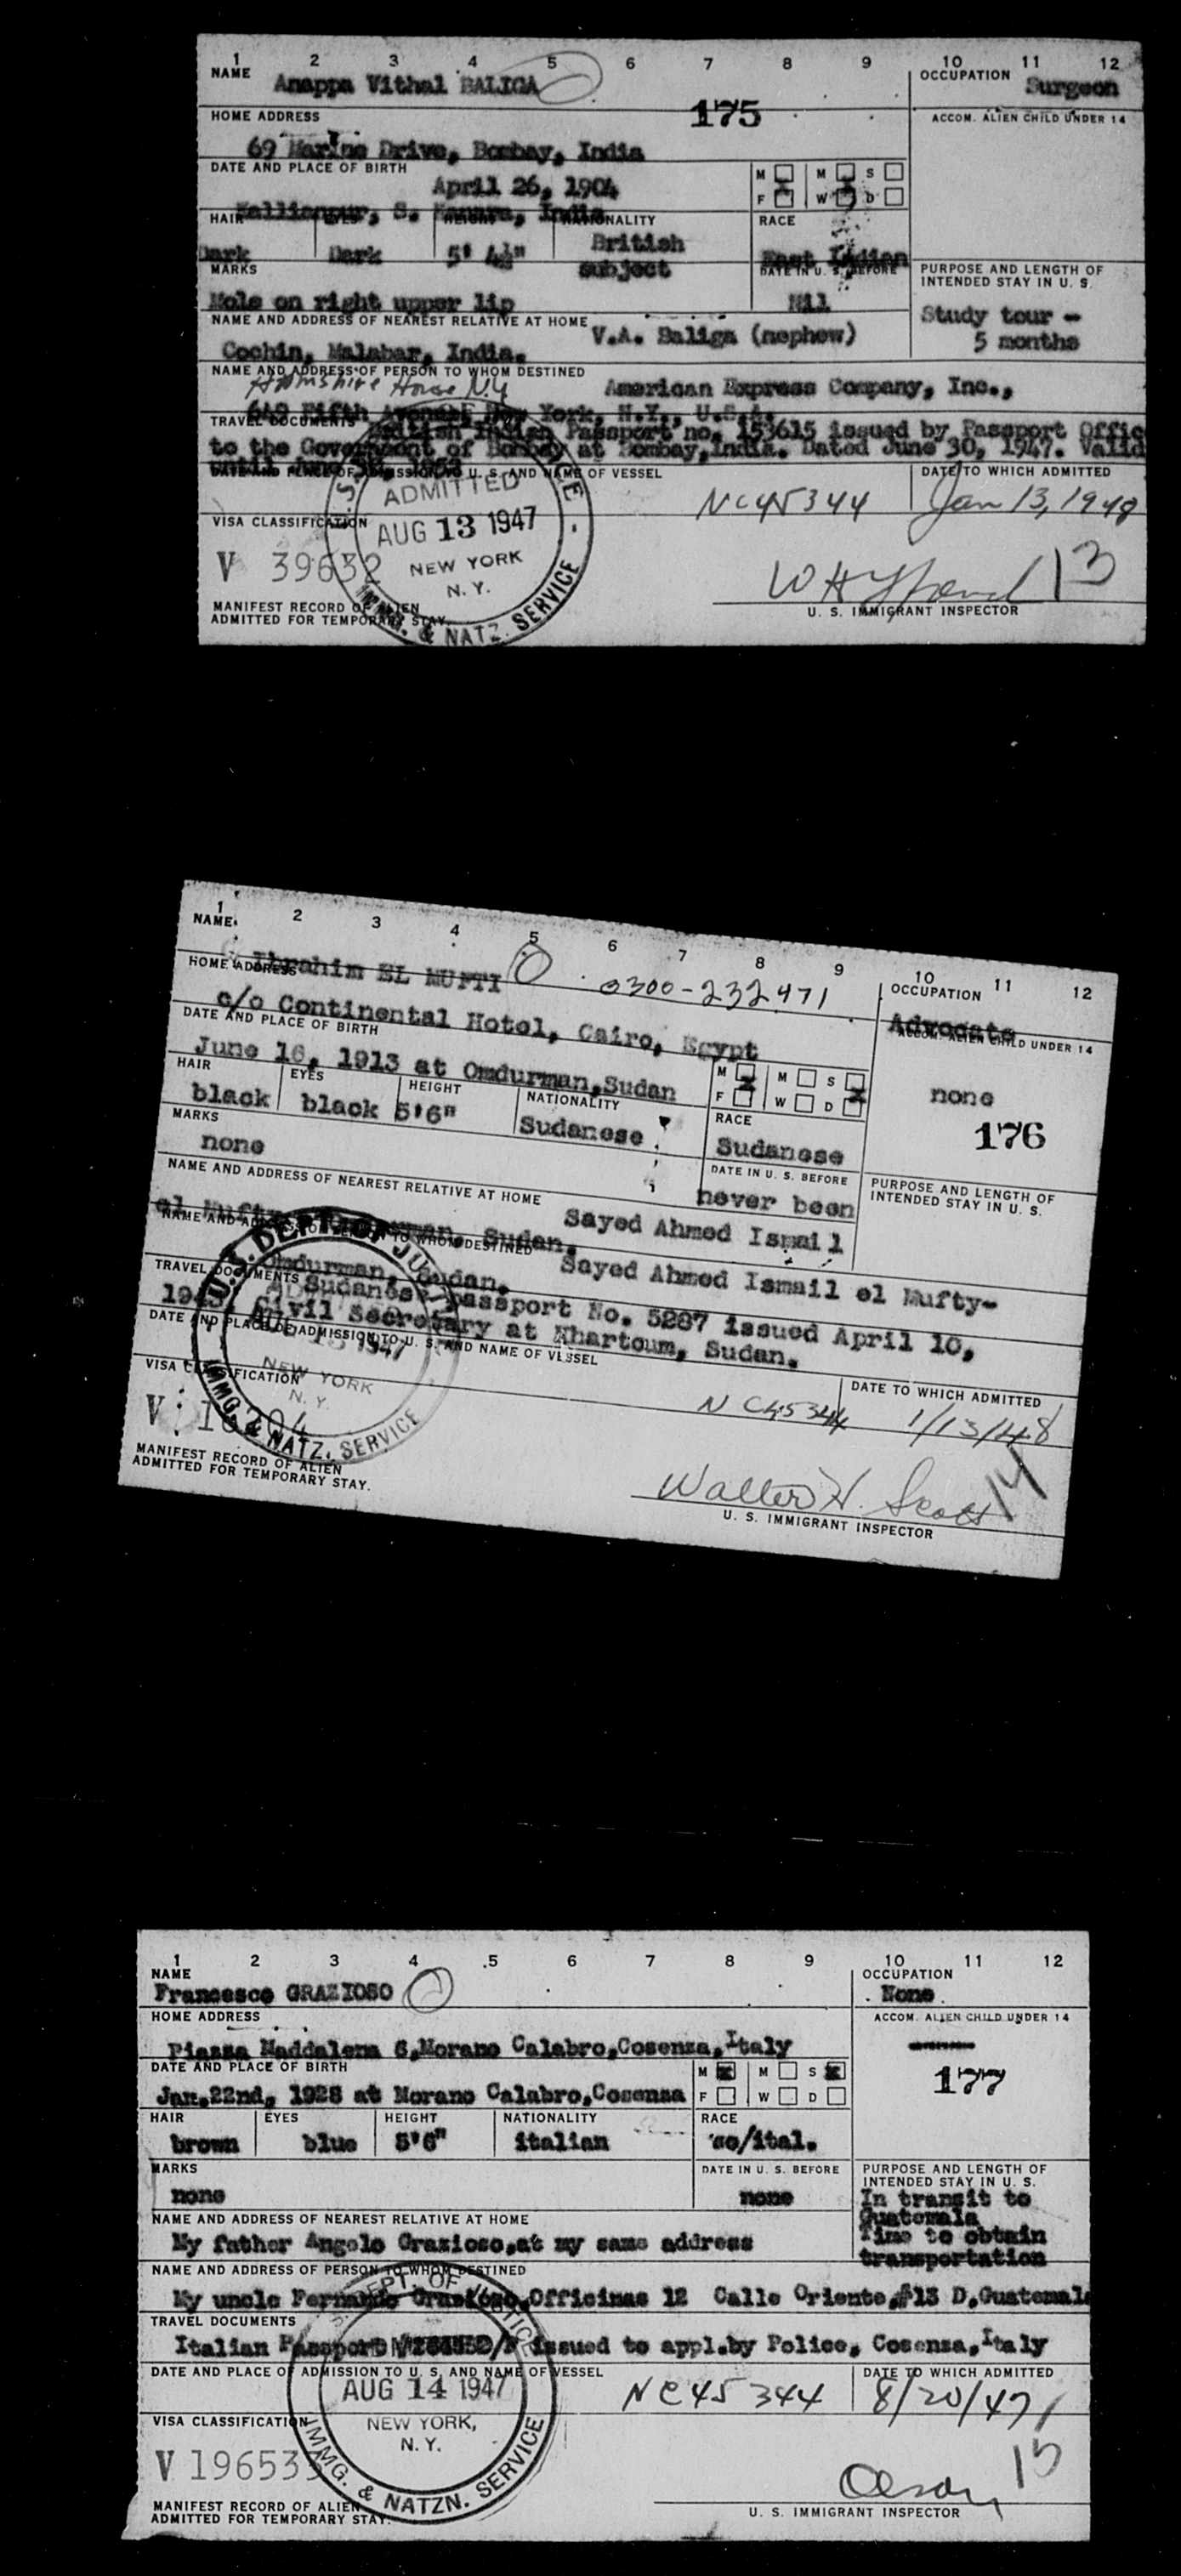 1 2 3 4 5 6 7 8 9 10 11 12
NAME Anappa Vithal BALIGA OCCUPATION Surgeon
175
HOME ADDRESS ACCOM. ALIEN CHILD UNDER 14
69 Marine Drive, Bombay, India
DATE AND PLACE OF BIRTH M M S
April 26, 1904 F W D
HAIR Kallianpur, S. Kanara, India NATIONALITY RACE
Dark Dark 5' 4½" British subject East Indian
MARKS DATE IN U. S. BEFORE PURPOSE AND LENGTH OF INTENDED STAY IN U. S.
Mole on right upper lip Nil
NAME AND ADDRESS OF NEAREST RELATIVE AT HOME V.A. Baliga (nephew) Study tour - 5 months
Cochin, Malabar, India.
NAME AND ADDRESS OF PERSON TO WHOM DESTINED American Express Company, Inc.,
Hampshire House N.Y
649 Fifth Avenue, New York, N.Y., U.S.A.
TRAVEL DOCUMENTS British Indian Passport no. 153615 issued by Passport Office
to the Government of Bombay at Bombay,India. Dated June 30, 1947. Valid
DATE AND PLACE OF ADMISSION TO U. S. AND NAME OF VESSEL DATE TO WHICH ADMITTED
ADMITTED NC45344 Jan 13, 1948
VISA CLASSIFICATION AUG 13 1947
V 39632 NEW YORK N. Y. 13
IMMG. & NATZ. SERVICE
MANIFEST RECORD OF ALIEN
ADMITTED FOR TEMPORARY STAY. U. S. IMMIGRANT INSPECTOR
1 2 3 4 5 6 7 8 9 10 11 12
NAME Ibrahim EL MUFTI 0300-232471 OCCUPATION
HOME ADDRESS Advocate
c/o Continental Hotel, Cairo, Egypt ACCOM. ALIEN CHILD UNDER 14
DATE AND PLACE OF BIRTH none
June 16, 1913 at Omdurman,Sudan M M S
176 F W D
HAIR EYES HEIGHT NATIONALITY RACE
black black 5'6" Sudanese Sudanese
MARKS DATE IN U. S. BEFORE PURPOSE AND LENGTH OF INTENDED STAY IN U. S.
none never been
NAME AND ADDRESS OF NEAREST RELATIVE AT HOME Sayed Ahmed Ismail
el Mufty Omdurman, Sudan.
NAME AND ADDRESS OF PERSON TO WHOM DESTINED Sayed Ahmed Ismail el Mufty-
Omdurman, Sudan.
TRAVEL DOCUMENTS Sudanese passport No. 5287 issued April 10,
Civil Secretary at Khartoum, Sudan.
DATE AND PLACE OF ADMISSION TO U. S. AND NAME OF VESSEL DATE TO WHICH ADMITTED
U. S. DEPT. OF JUSTICE
13 1947 NC45344 1/13/48
VISA CLASSIFICATION NEW YORK N. Y.
V
IMMG. & NATZ. SERVICE
14
MANIFEST RECORD OF ALIEN
ADMITTED FOR TEMPORARY STAY. Walter H. Scott
U. S. IMMIGRANT INSPECTOR
1 2 3 4 5 6 7 8 9 10 11 12
NAME OCCUPATION
Francesco GRAZIOSO None
HOME ADDRESS ACCOM. ALIEN CHILD UNDER 14
Piazza Maddalena 6,Morano Calabro,Cosenza,Italy
DATE AND PLACE OF BIRTH M M S
177
Jan.22nd, 1928 at Morano Calabro,Cosenza F W D
HAIR EYES HEIGHT NATIONALITY RACE
brown blue 5'6" italian so/ital.
MARKS DATE IN U. S. BEFORE PURPOSE AND LENGTH OF INTENDED STAY IN U. S.
none none In transit to
NAME AND ADDRESS OF NEAREST RELATIVE AT HOME Guatemala
My father Angelo Grazioso,at my same address Time to obtain transportation
NAME AND ADDRESS OF PERSON TO WHOM DESTINED
My uncle Fernando Grazioso,Officinas 12 Calle Oriente,#13 D.Guatemala
TRAVEL DOCUMENTS
Italian Passport issued to appl.by Police, Cosenza,Italy
DATE AND PLACE OF ADMISSION TO U. S. AND NAME OF VESSEL DATE TO WHICH ADMITTED
DEPT. OF JUSTICE
AUG 14 1947 NC45344 8/20/47
VISA CLASSIFICATION NEW YORK, N. Y.
V 19653
IMMG. & NATZN. SERVICE
15
MANIFEST RECORD OF ALIEN Olson
ADMITTED FOR TEMPORARY STAY. U. S. IMMIGRANT INSPECTOR